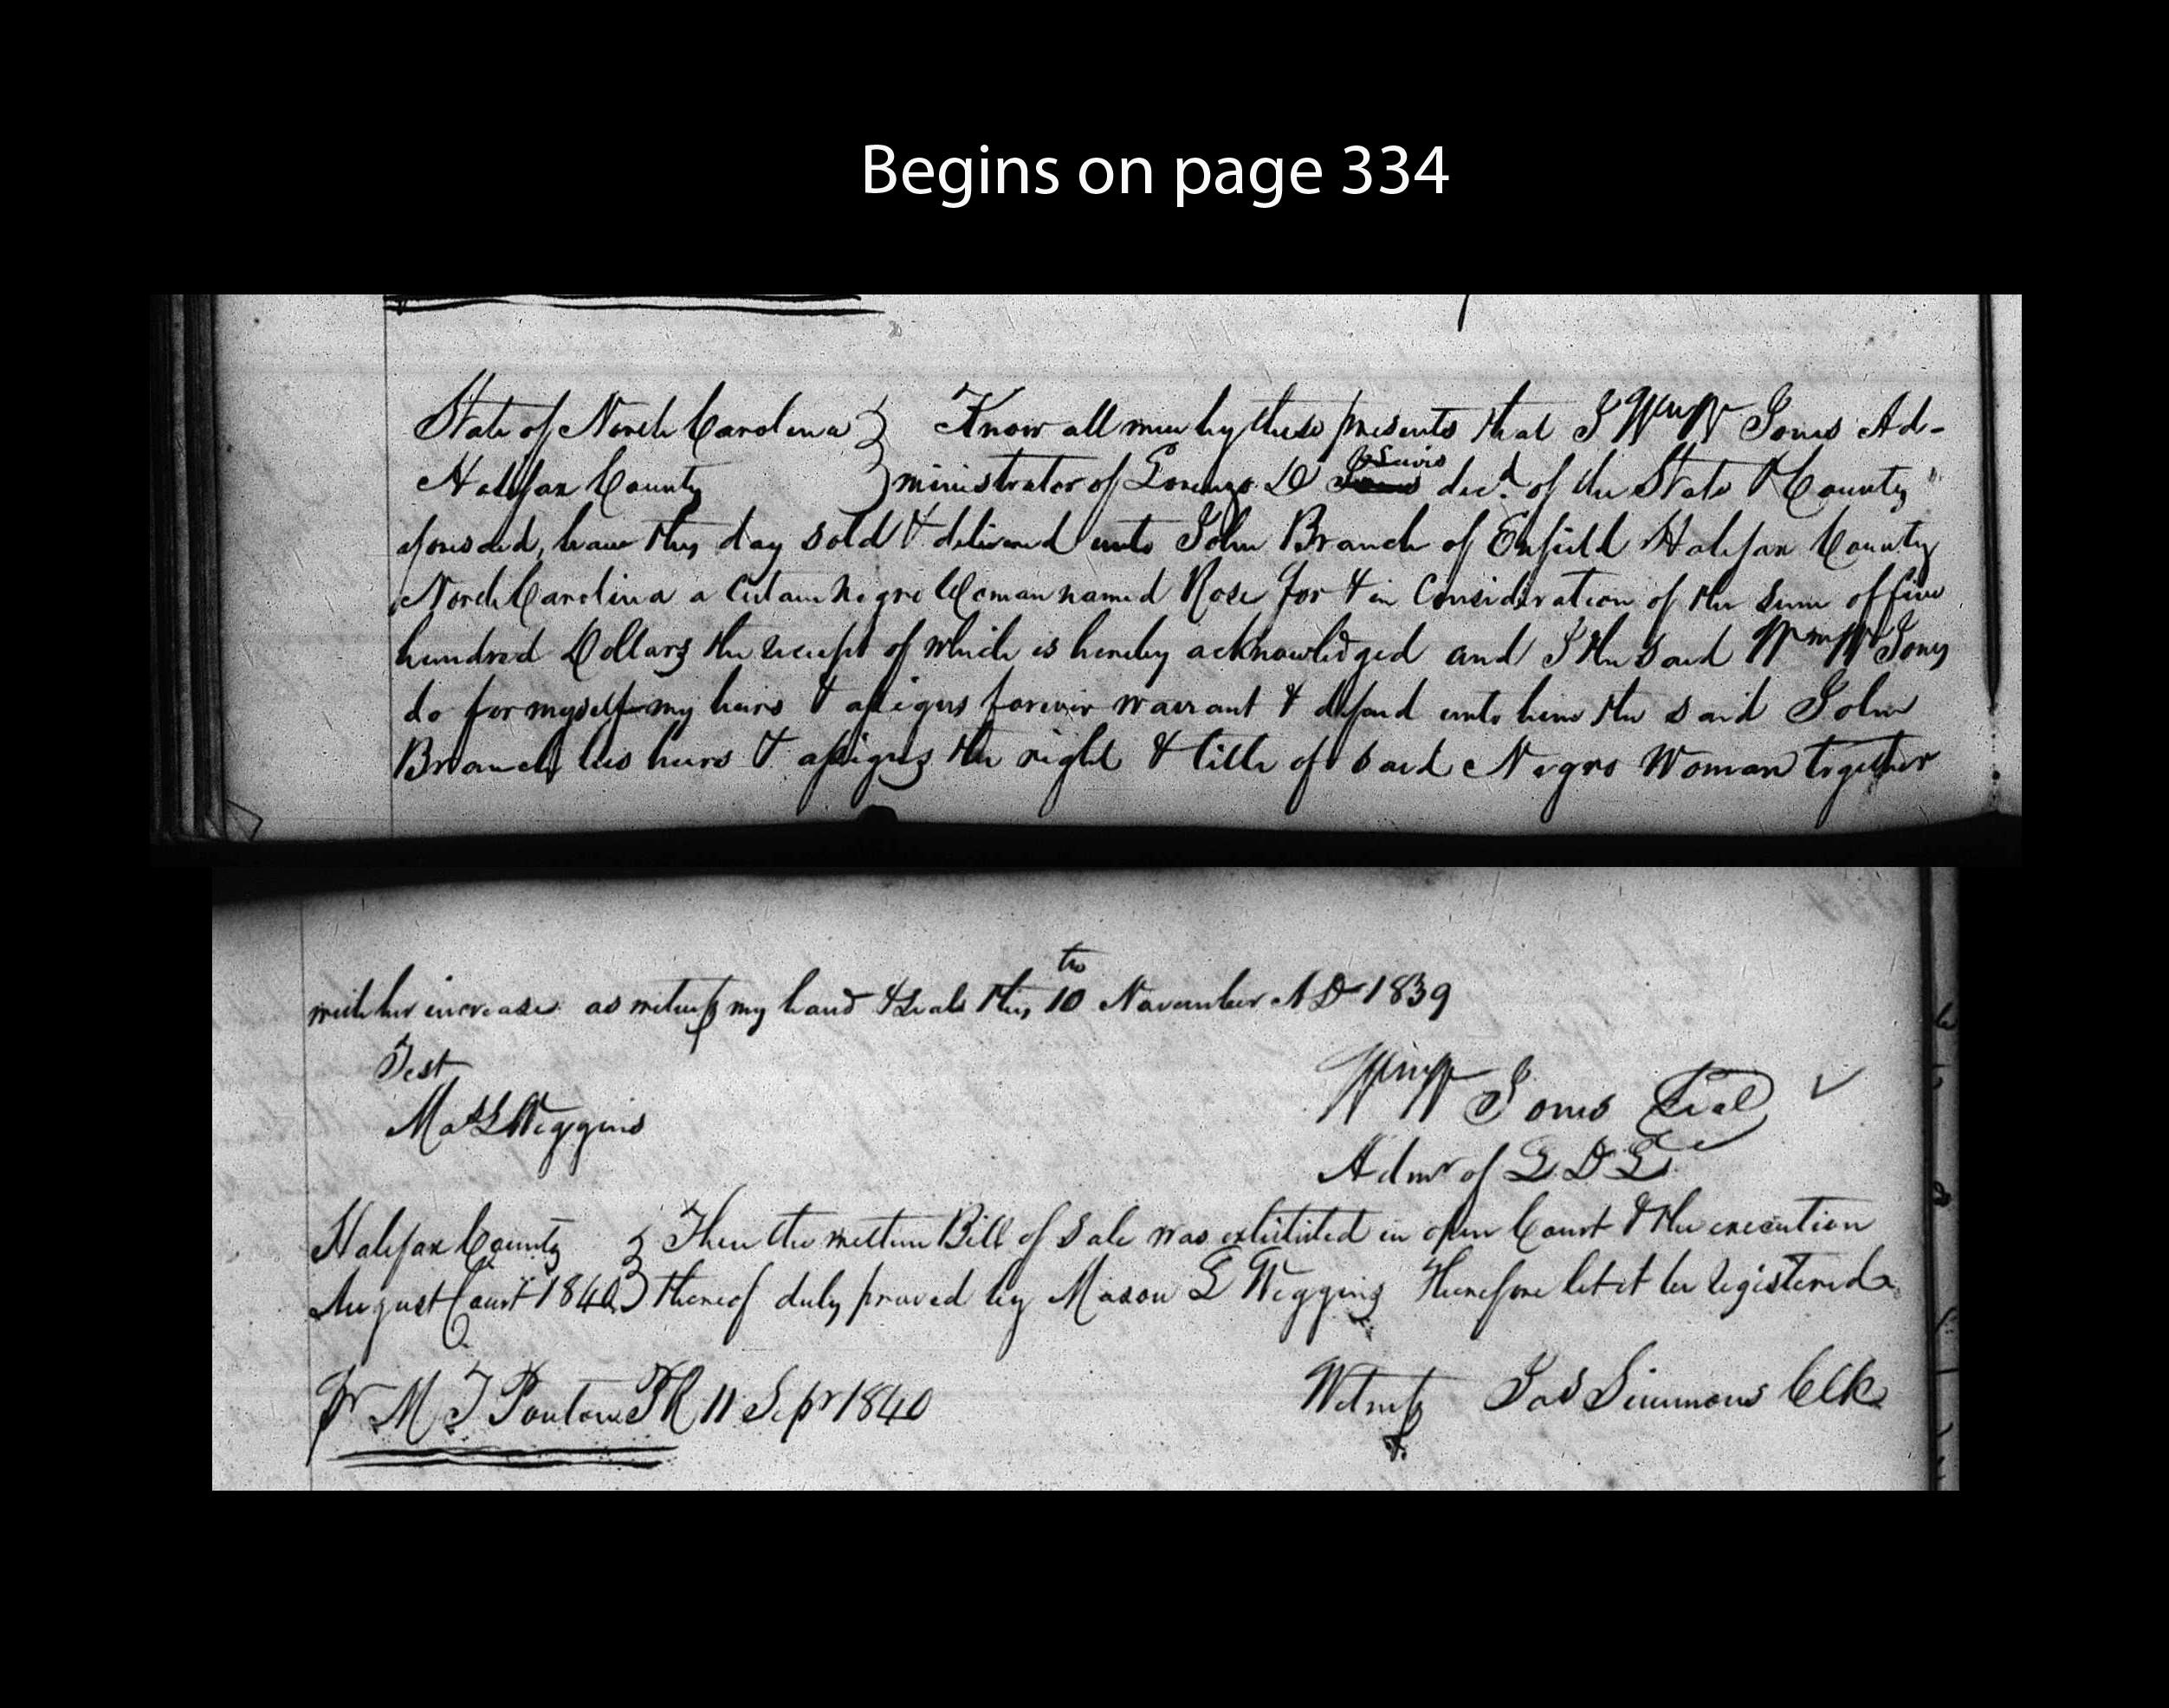 Begins on page 334
State of North Carolina } Know all men by these presents that I Wm W Jones Ad-
Halifax County } ministrator of Lorenzo D dec.d of the State & County
aforesaid, have this day sold & delivered unto John Branch of Enfield Halifax County
North Carolina a Certain Negro Woman named Rose for & in Consideration of the sum of five
hundred Dollars the receipt of which is hereby acknowledged and I the said Wm W Jones
do for myself my heirs & assigns forever warrant & defend unto him the said John
Branch his heirs & assigns the right & title of said Negro Woman together
with her increase as witness my hand & seal this 10th November AD 1839
Test
Mas L Wiggins
Wm W Jones Seal
Admr of L D L
Halifax County } Then the written Bill of Sale was exhibited in open Court & the execution
August Court 1840 } thereof duly proved by Mason L Wiggins Therefore let it be registered
Witness Jas Simmons Clk
pr M T Ponton PR 11 Sepr 1840